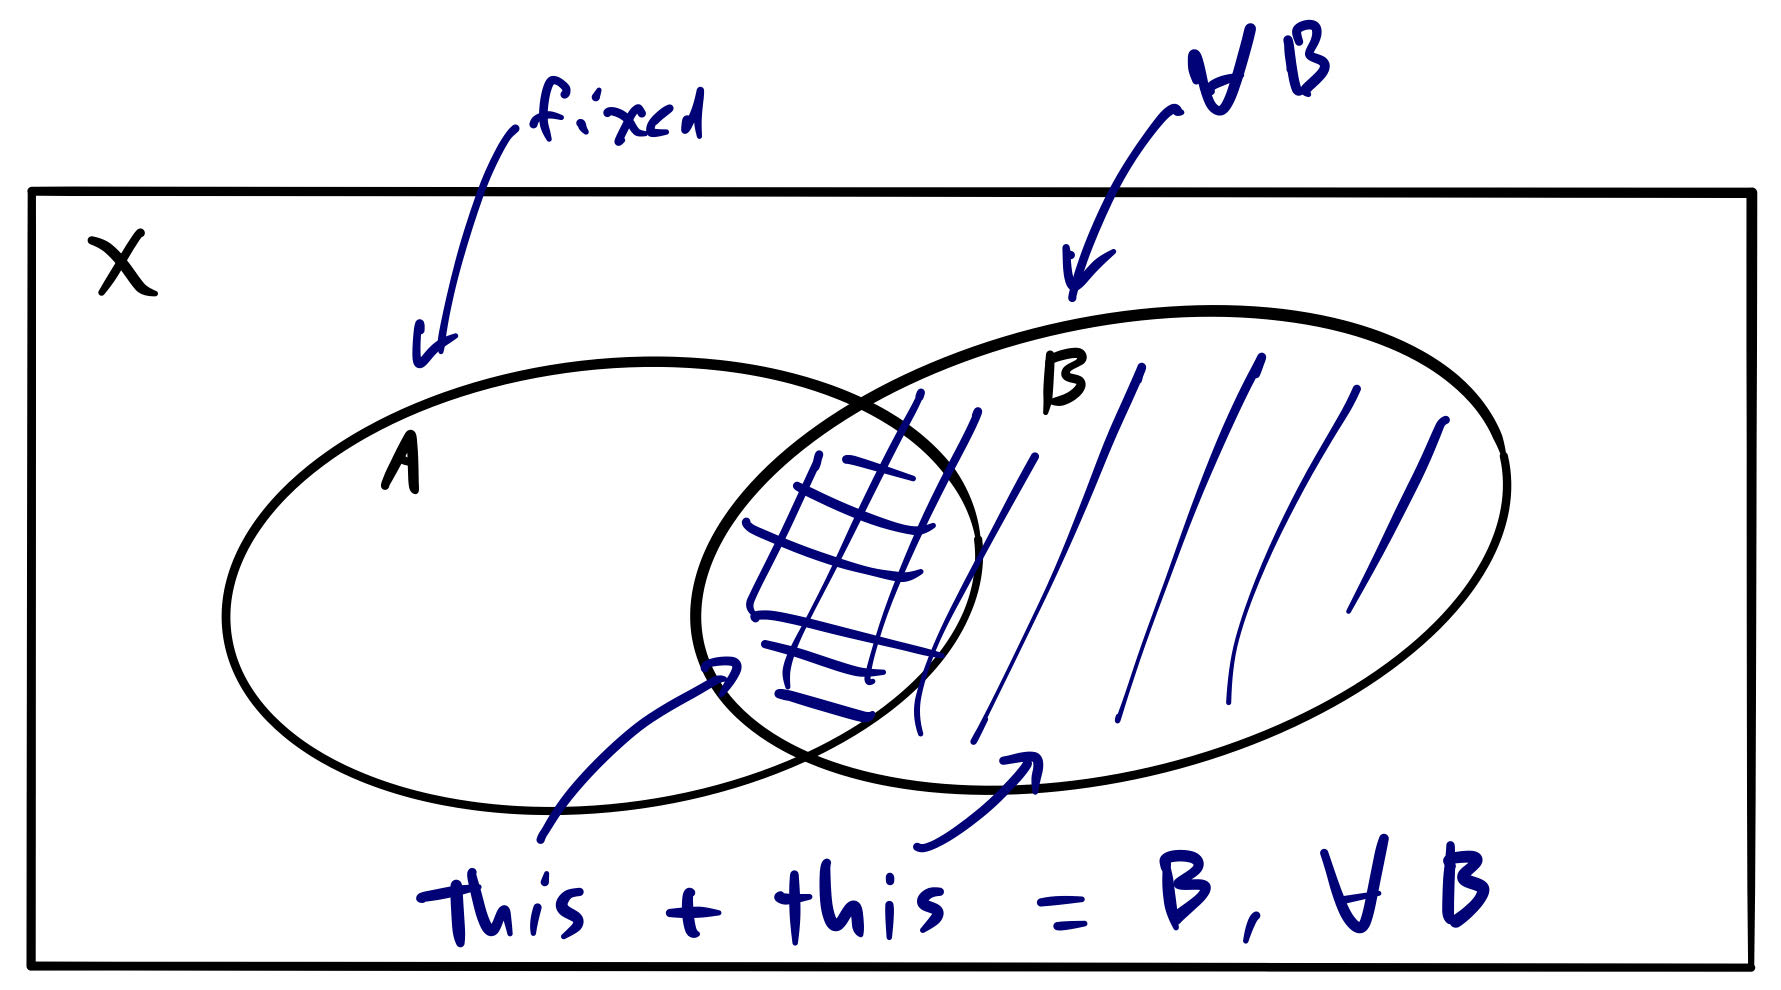 fixed
∀ B
X
A
B
this + this = B, ∀ B